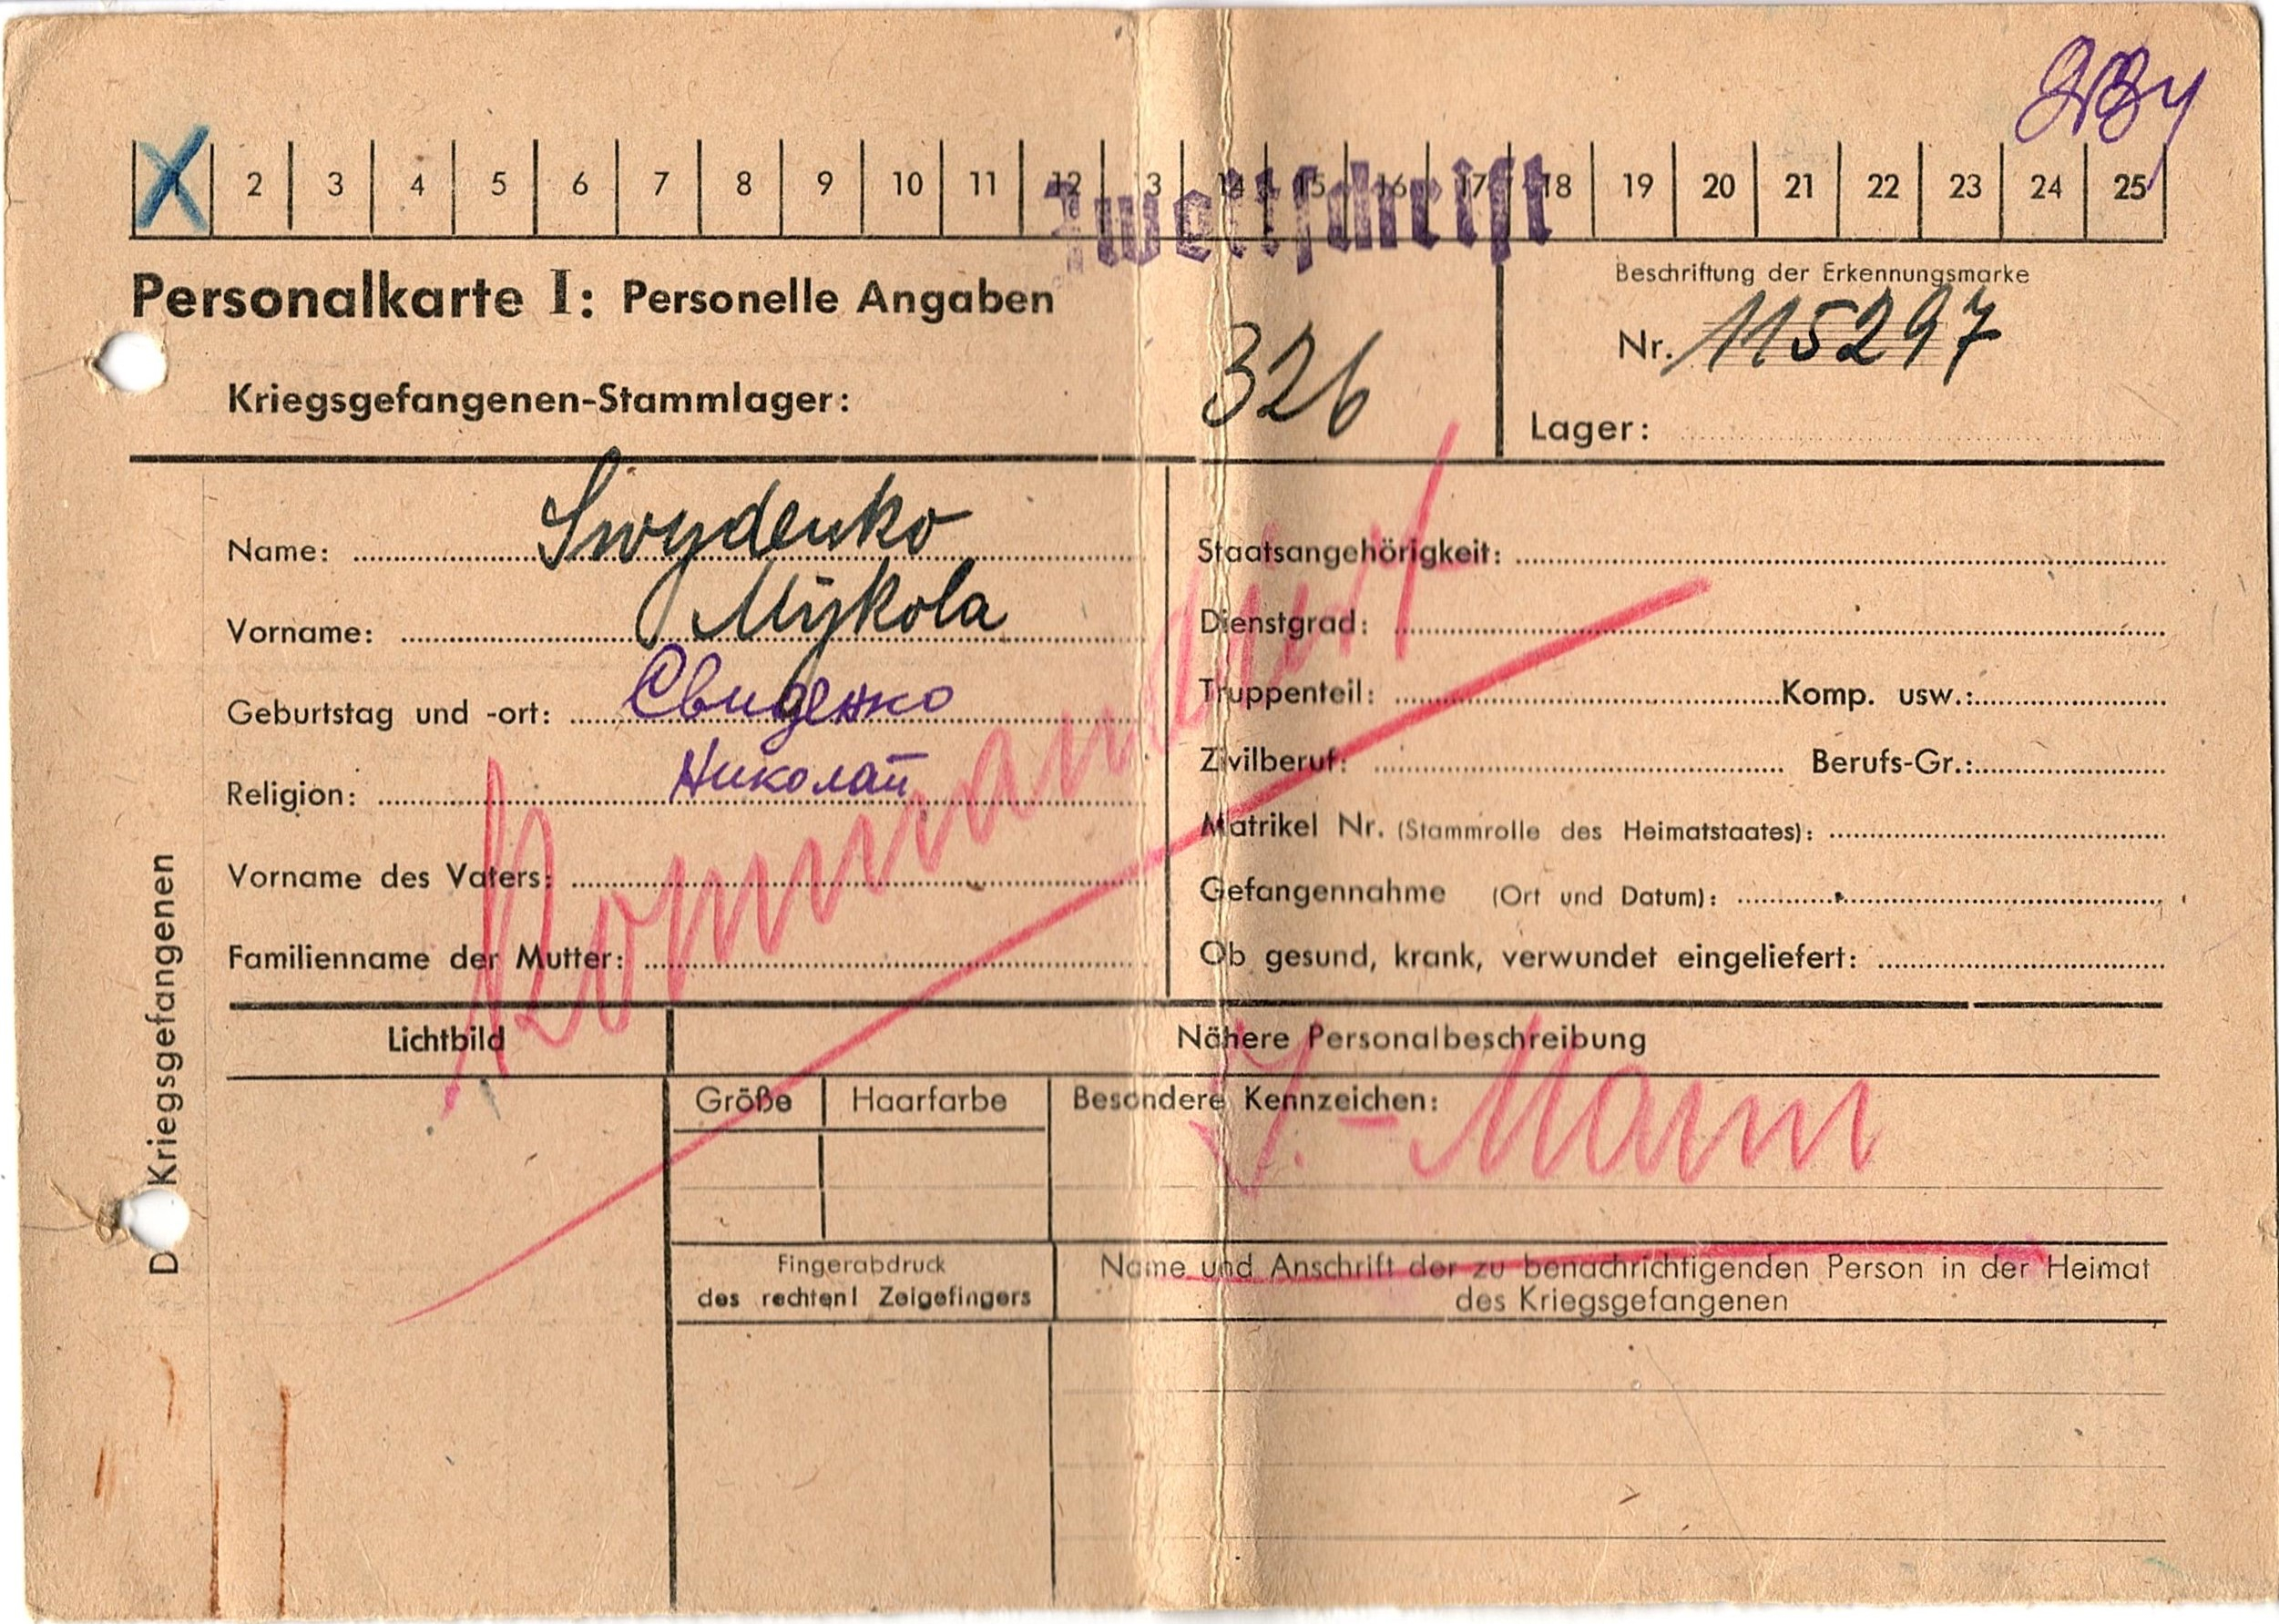 2 3 4 5 6 7 8 9 10 11 12 13 14 15 16 17 18 19 20 21 22 23 24 25
Zweitschrift
Personalkarte I: Personelle Angaben
Beschriftung der Erkennungsmarke
Nr. 115297
Kriegsgefangenen-Stammlager: 326
Lager:
Name: Swydenko
Vorname: Mykola
Geburtstag und -ort: Свиденко
Religion: Николай
Vorname des Vaters:
Familienname der Mutter:
Staatsangehörigkeit:
Dienstgrad:
Truppenteil: Komp. usw.:
Zivilberuf: Berufs-Gr.:
Matrikel Nr. (Stammrolle des Heimatstaates):
Gefangennahme (Ort und Datum):
Ob gesund, krank, verwundet eingeliefert:
Kommandiert
D Kriegsgefangenen
Lichtbild
Nähere Personalbeschreibung
Größe Haarfarbe Besondere Kennzeichen:
-Mann
Fingerabdruck
des rechten Zeigefingers
Name und Anschrift der zu benachrichtigenden Person in der Heimat
des Kriegsgefangenen